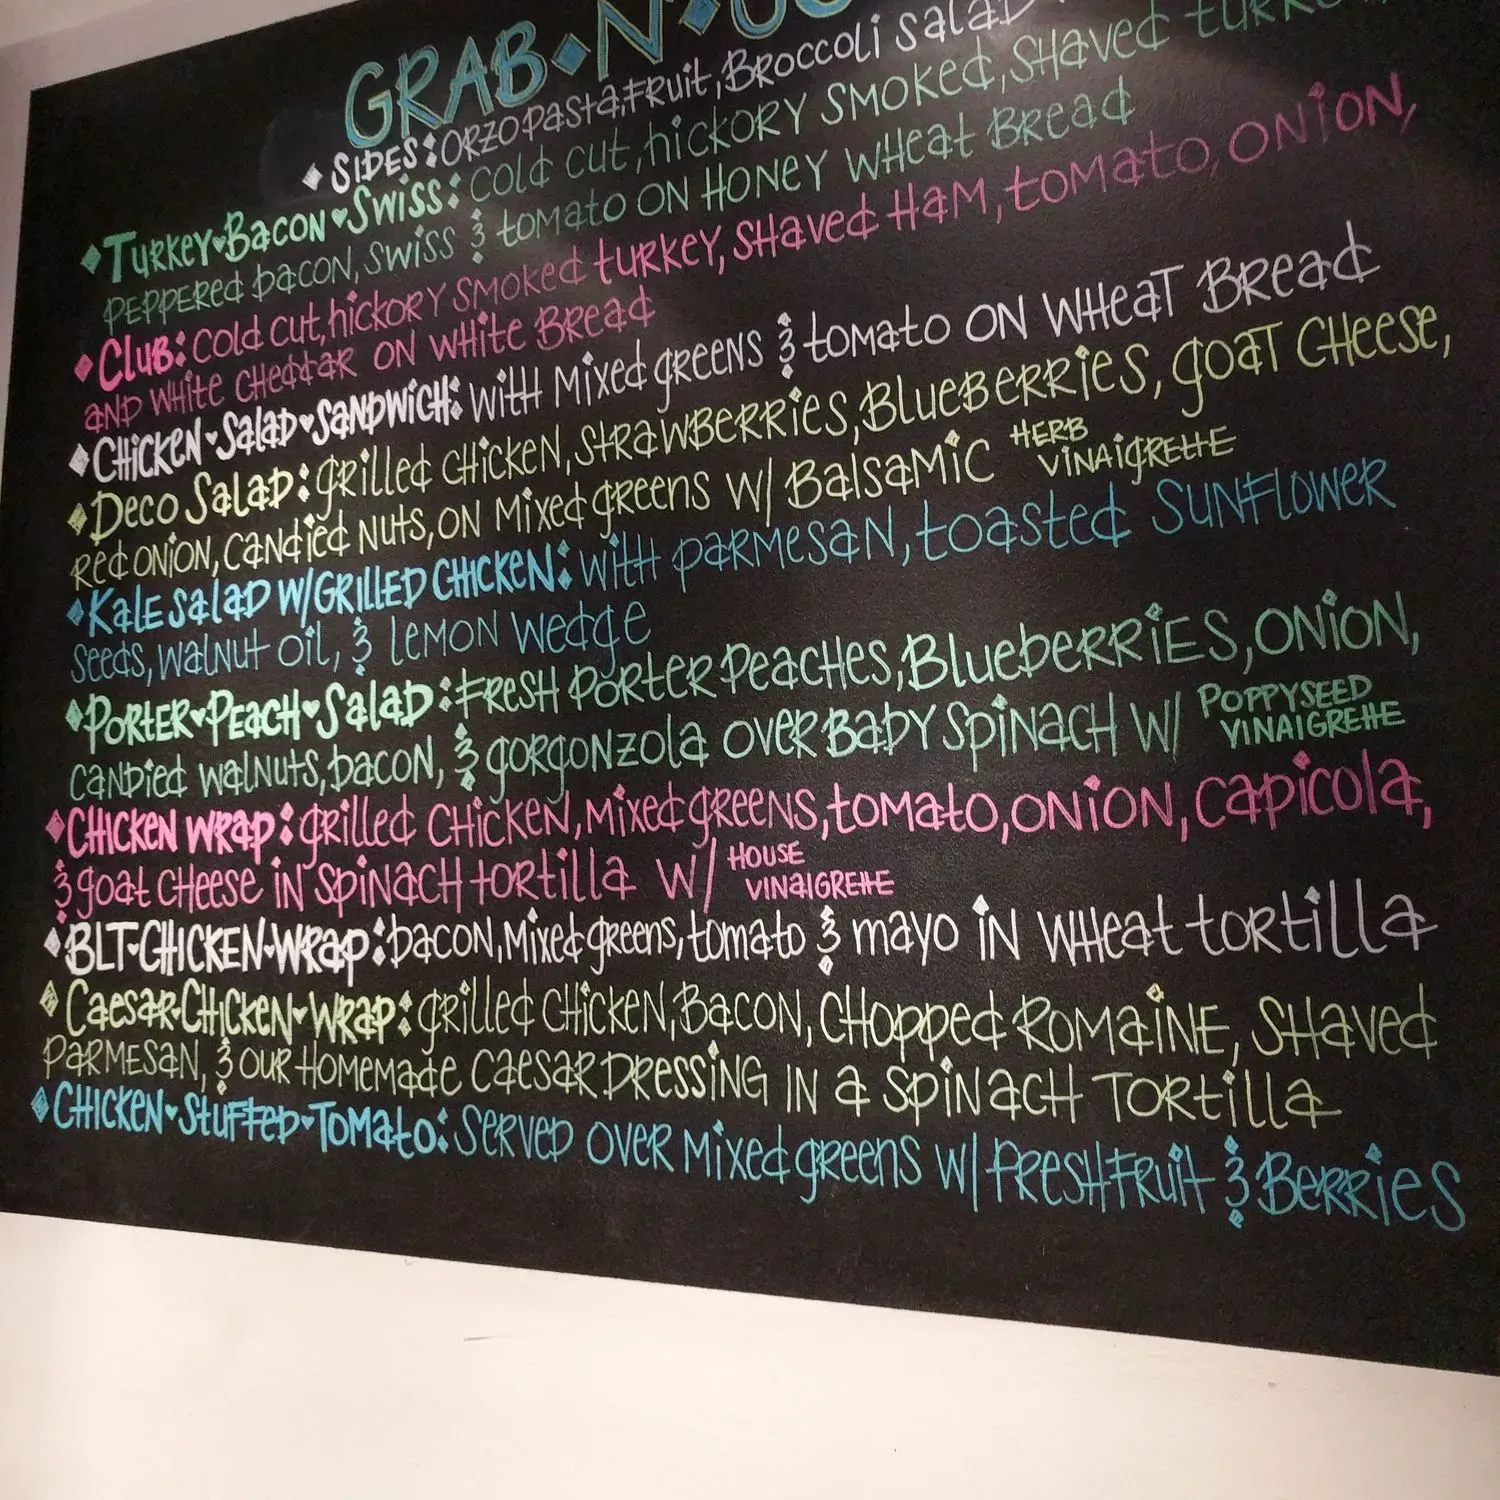 GRAB·N·GO
◆SIDES: ORZO PASTA, FRUIT, BROCCOLI SALAD
◆TURKEY♥BACON♥SWISS: COLD CUT, HICKORY SMOKED, SHAVED TURKEY,
PEPPERED BACON, SWISS & TOMATO ON HONEY WHEAT BREAD
◆CLUB: COLD CUT, HICKORY SMOKED TURKEY, SHAVED HAM, TOMATO, ONION,
AND WHITE CHEDDAR ON WHITE BREAD
◆CHICKEN♥SALAD♥SANDWICH: WITH MIXED GREENS & TOMATO ON WHEAT BREAD
◆DECO SALAD: GRILLED CHICKEN, STRAWBERRIES, BLUEBERRIES, GOAT CHEESE,
RED ONION, CANDIED NUTS, ON MIXED GREENS W/ BALSAMIC HERB VINAIGRETTE
◆KALE SALAD W/GRILLED CHICKEN: WITH PARMESAN, TOASTED SUNFLOWER
SEEDS, WALNUT OIL, & LEMON WEDGE
◆PORTER♥PEACH♥SALAD: FRESH PORTER PEACHES, BLUEBERRIES, ONION,
CANDIED WALNUTS, BACON, & GORGONZOLA OVER BABY SPINACH W/ POPPYSEED VINAIGRETTE
◆CHICKEN WRAP: GRILLED CHICKEN, MIXED GREENS, TOMATO, ONION, CAPICOLA,
& GOAT CHEESE IN SPINACH TORTILLA W/ HOUSE VINAIGRETTE
◆BLT♥CHICKEN♥WRAP: BACON, MIXED GREENS, TOMATO & MAYO IN WHEAT TORTILLA
◆CAESAR♥CHICKEN♥WRAP: GRILLED CHICKEN, BACON, CHOPPED ROMAINE, SHAVED
PARMESAN, & OUR HOMEMADE CAESAR DRESSING IN A SPINACH TORTILLA
◆CHICKEN♥STUFFED♥TOMATO: SERVED OVER MIXED GREENS W/ FRESH FRUIT & BERRIES